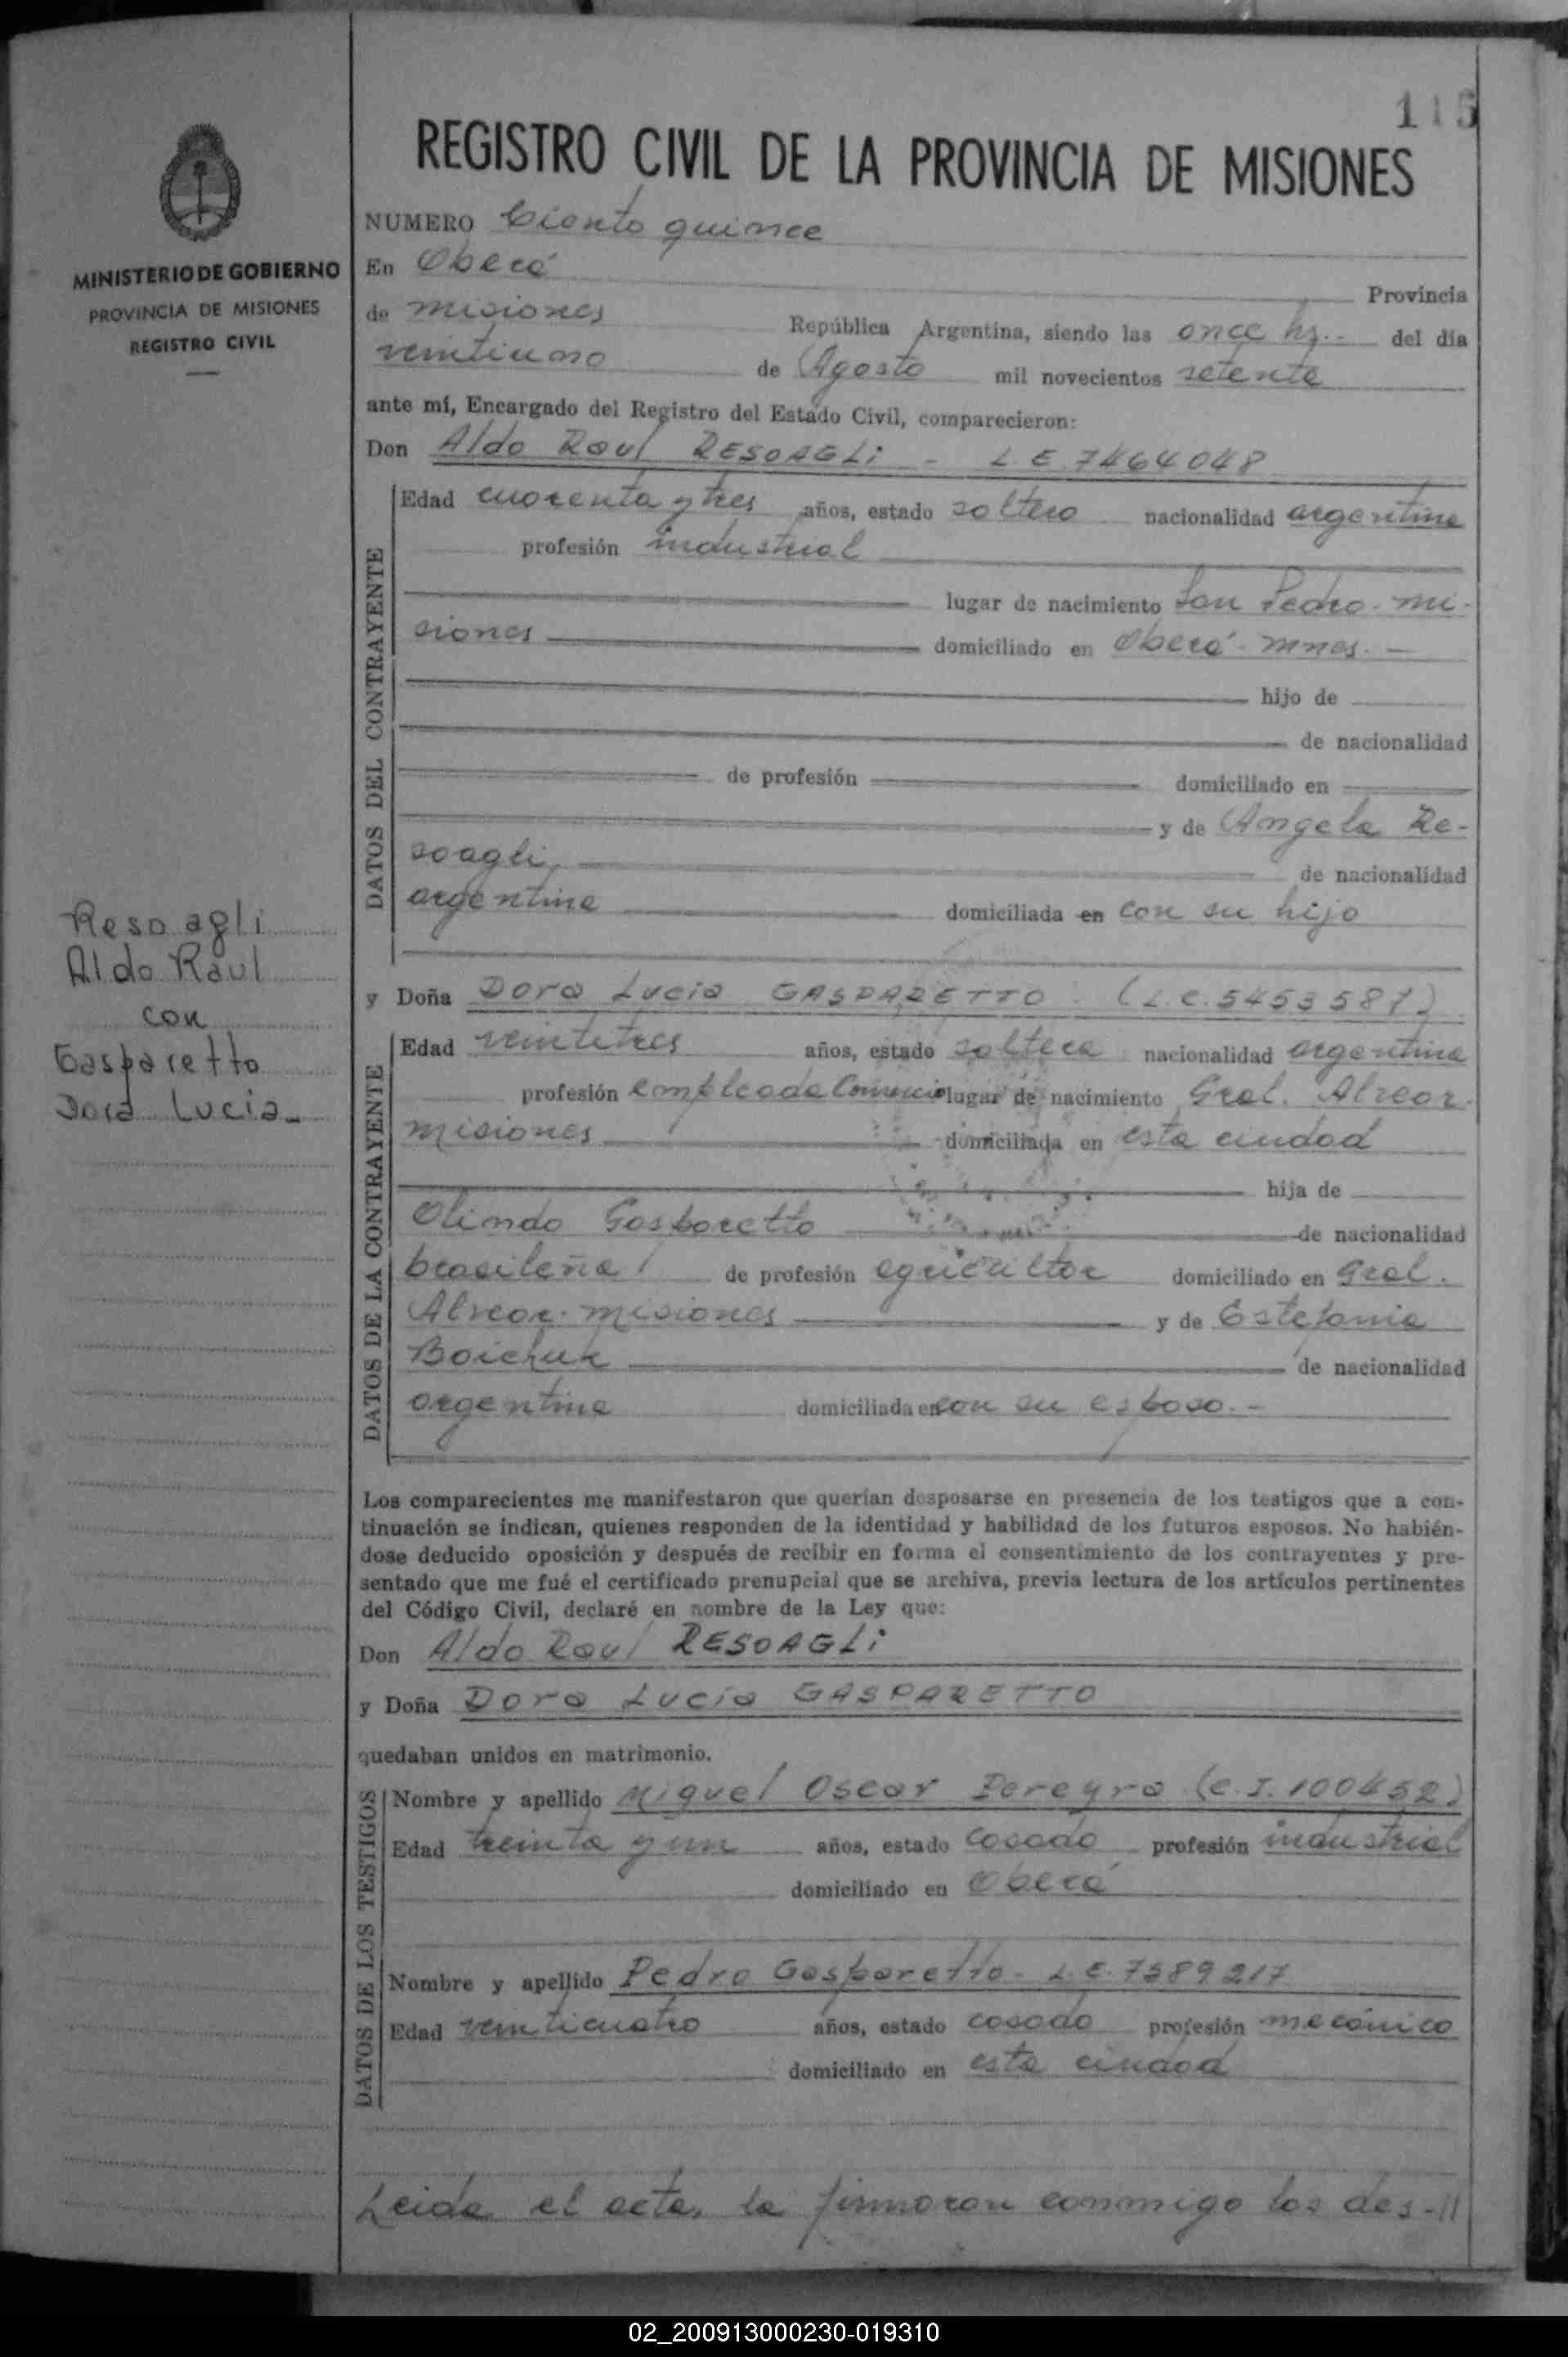 115
REGISTRO CIVIL DE LA PROVINCIA DE MISIONES
MINISTERIO DE GOBIERNO
PROVINCIA DE MISIONES
REGISTRO CIVIL
NUMERO Ciento quince
En Oberá Provincia
de misiones República Argentina, siendo las once hs.- del día
veintiuno de Agosto mil novecientos setenta
ante mí, Encargado del Registro del Estado Civil, comparecieron:
Don Aldo Raul RESOAGLi - L.E. 7464048
DATOS DEL CONTRAYENTE
Edad cuarenta y tres años, estado soltero nacionalidad argentina
profesión industrial
lugar de nacimiento San Pedro - mi-
siones domiciliado en Oberá - mnes. -
hijo de
de nacionalidad
de profesión domiciliado en
y de Angela Re-
soagli, de nacionalidad
argentina domiciliada en con su hijo
Resoagli
Aldo Raul
con
Gasparetto
Dora Lucia_
y Doña Dora Lucia GASPARETTO. (L.C. 5453587)
DATOS DE LA CONTRAYENTE
Edad veintitres años, estado soltera nacionalidad argentina
profesión empleada Comercio lugar de nacimiento Gral. Alvear.
misiones domiciliada en esta ciudad
hija de
Olindo Gasparetto de nacionalidad
brasileña de profesión agricultor domiciliado en Gral.
Alvear - misiones y de Estefania
Boichuk de nacionalidad
argentina domiciliada en con su esposo. -
Los comparecientes me manifestaron que querían desposarse en presencia de los testigos que a con-
tinuación se indican, quienes responden de la identidad y habilidad de los futuros esposos. No habién-
dose deducido oposición y después de recibir en forma el consentimiento de los contrayentes y pre-
sentado que me fué el certificado prenupcial que se archiva, previa lectura de los artículos pertinentes
del Código Civil, declaré en nombre de la Ley que:
Don Aldo Raul RESOAGLi
y Doña Dora Lucia GASPARETTO
quedaban unidos en matrimonio.
DATOS DE LOS TESTIGOS
Nombre y apellido Miguel Oscar Pereyra (C.I. 100452)
Edad treinta y un años, estado casado profesión industrial
domiciliado en Oberá
Nombre y apellido Pedro Gasparetto - L.E. 7589217
Edad veinticuatro años, estado casado profesión mecánico
domiciliado en esta ciudad
Leida el acta, la firmaron conmigo los des-//
02_200913000230-019310